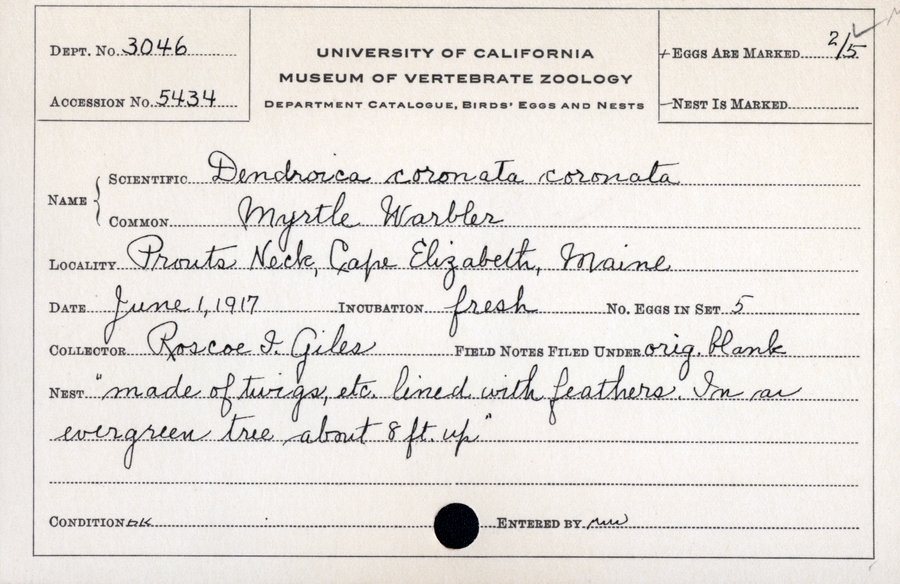 DEPT. No. 3046
ACCESSION No. 5434
UNIVERSITY OF CALIFORNIA
MUSEUM OF VERTEBRATE ZOOLOGY
DEPARTMENT CATALOGUE, BIRDS' EGGS AND NESTS
EGGS ARE MARKED 2/5
NEST IS MARKED
NAME
SCIENTIFIC Dendroica coronata coronata
COMMON Myrtle Warbler
LOCALITY Prouts Neck, Cape Elizabeth, Maine
DATE June 1, 1917 INCUBATION fresh No. EGGS IN SET 5
COLLECTOR Roscoe I. Giles FIELD NOTES FILED UNDER orig. blank
NEST "made of twigs, etc. lined with feathers. In an
evergreen tree about 8 ft. up"
CONDITION OK ENTERED BY